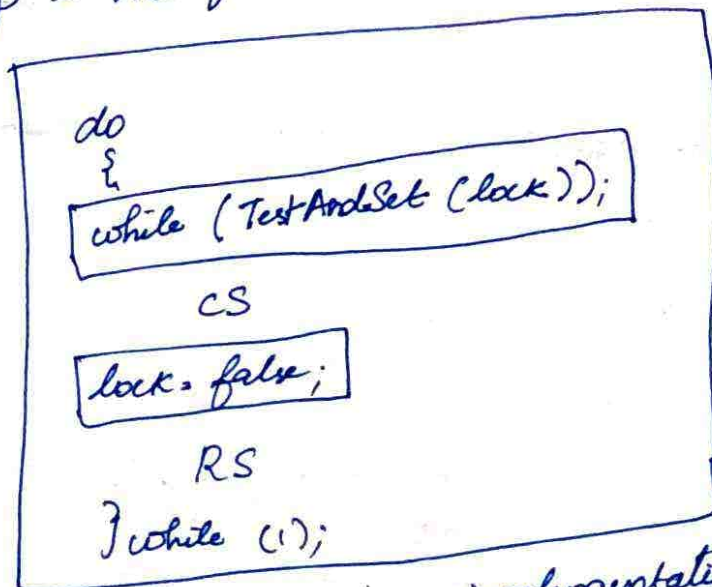 do
{
while (TestAndSet (lock));
CS
lock = false;
RS
} while (1);